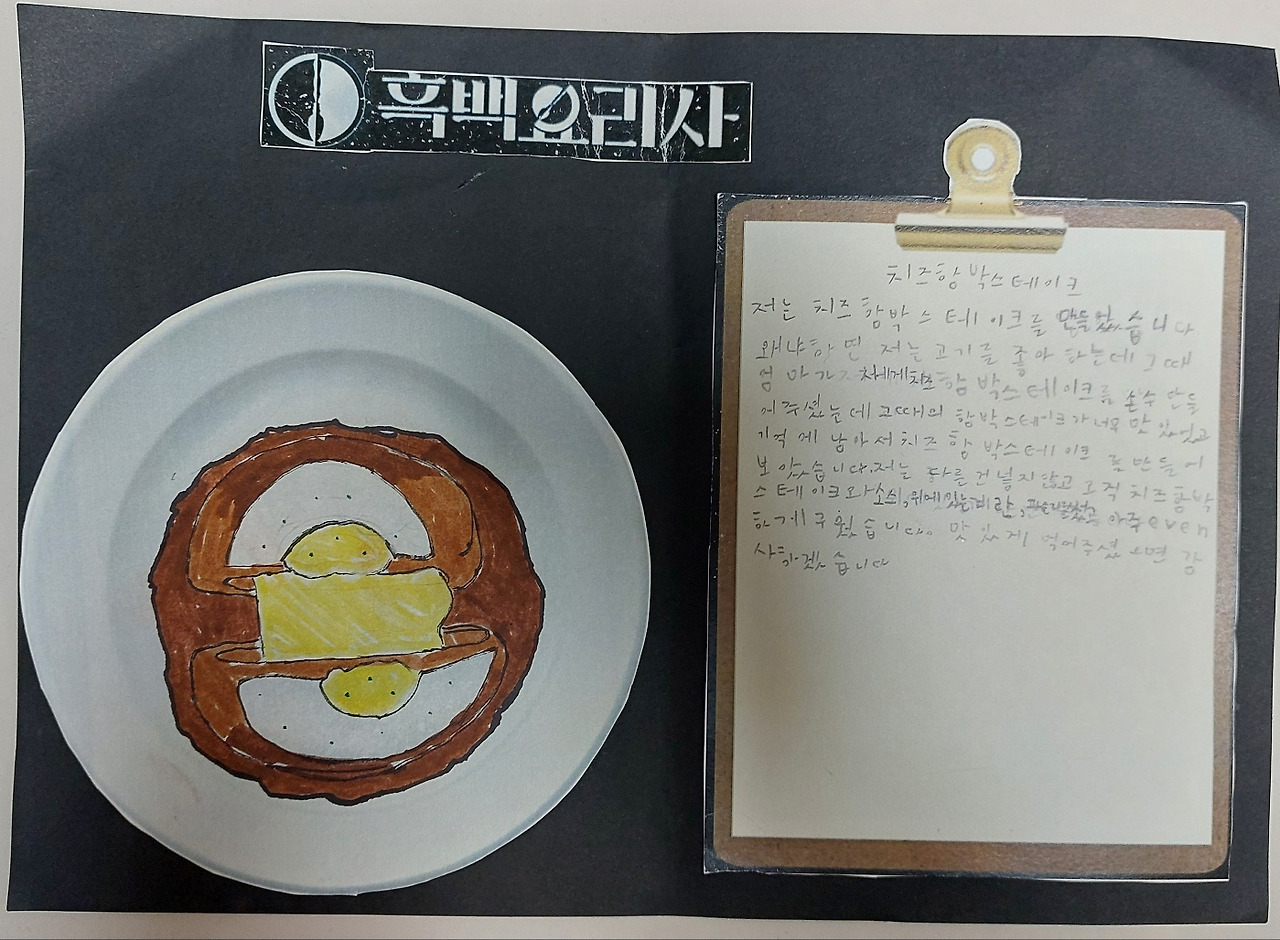 흑백요리사
치즈함박스테이크
저는 치즈함박스테이크를 만들었습니다
왜냐하면 저는고기를 좋아 하는데 그때
엄마가 치즈함박스테이크를 손수 만들
어주셨는데 그때의 함박스테이크가 너무 맛있었고
기억에 남아서 치즈함박스테이크를 만들어
보았습니다. 저는 다른건 넣지않고 오직 치즈함박
스테이크와 소스, 위에있는계란, 아주 even
하게 구웠습니다. 맛있게 먹어주셨으면 감
사하겠습니다